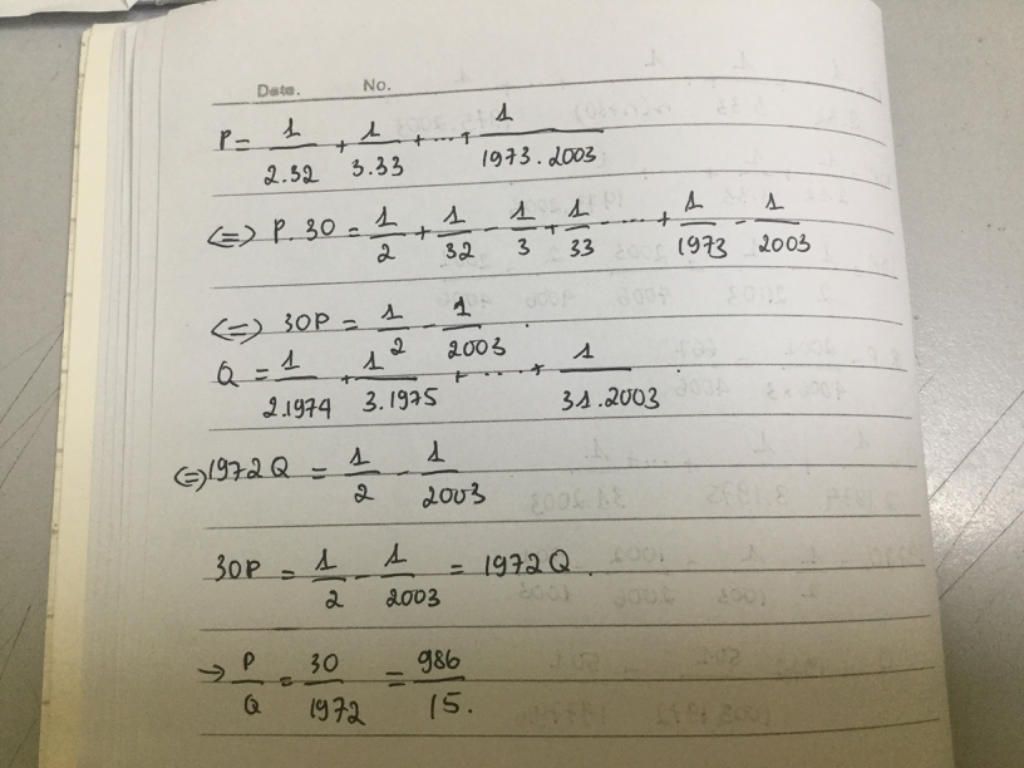 Date. No.
P = 1/2.32 + 1/3.33 + ... + 1/1973.2003
(=) P.30 = 1/2 + 1/32 - 1/3 + 1/33 ... + 1/1973 - 1/2003
(=) 30P = 1/2 - 1/2003
Q = 1/2.1974 + 1/3.1975 + .... + 1/31.2003
(=) 1972Q = 1/2 - 1/2003
30P = 1/2 - 1/2003 = 1972Q.
→ P/Q = 30/1972 = 986/15.